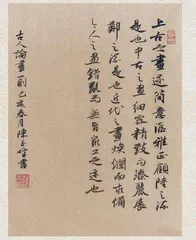 上古之畫迹簡意澹雅正顧陸之流
是也中古之畫細密精致而臻麗展
鄭之流是也近代之畫煥爛而求備
今人之畫錯亂而無旨眾工之迹也
古人論畫一則己亥春月陳書